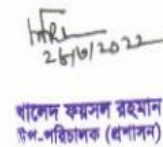 26/6/2022
খালেদ ফয়সল রহমান
উপ-পরিচালক (প্রশাসন)